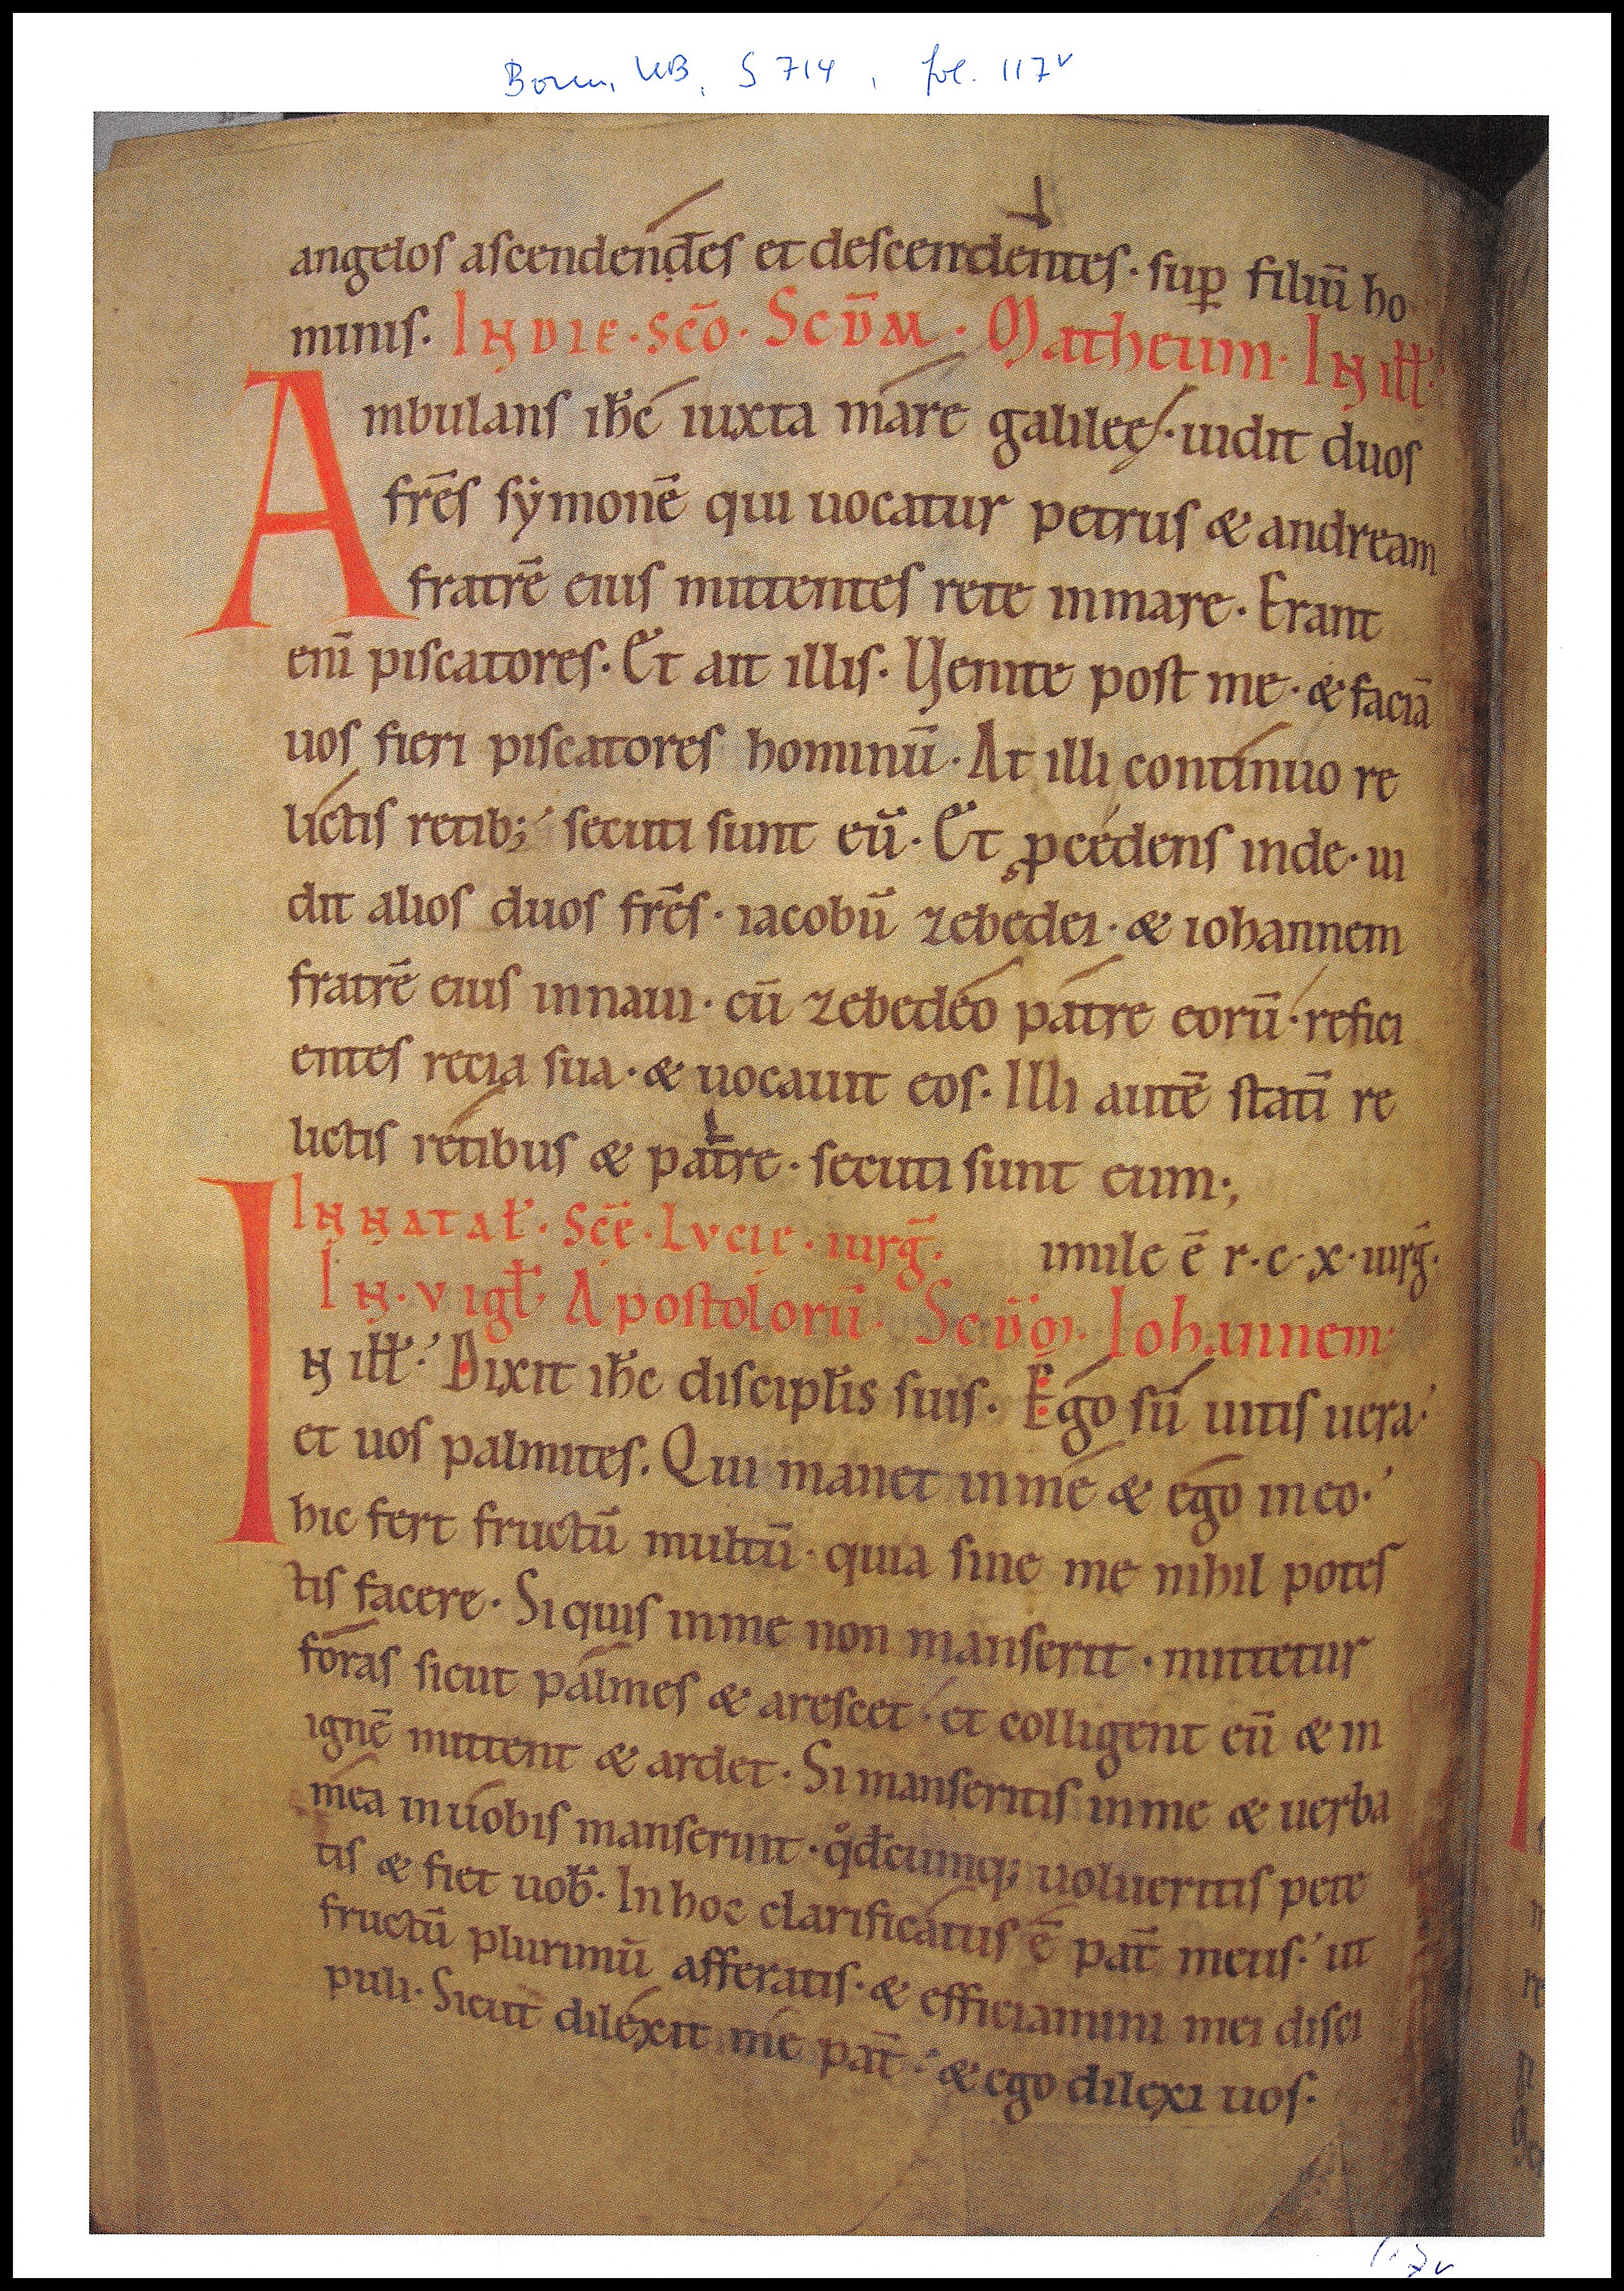 Bonn, UB, S 714, fol. 117v
angelos ascendendes et descendentes · sup filiū ho
minis. IN DIE · SCŌ · SCDM̄ · Matheum · IN ill̄
Ambulans ih̄c iuxta mare galileę · uidit duos
fr̄es sẏmonē qui uocatur petrus & andream
fratrē eius mittentes rete inmare · Erant
eni̅ piscatores · Et ait illis · Venite post me · & faciā
uos fieri piscatores hominū · At illi continuo re
lictis retib; secuti sunt eū · Et ꝓcedens inde · ui
dit alios duos fr̄es · iacobū zebedei · & iohannem
fratrē eius innaui · cū zebedeo patre eorū · refici
entes recia sua · & uocauit eos · Illi autē statī re
lictis retibus & patre · secuti sunt eum·,
IN NATAƚ · SCĒ · LVCIE · uirḡ.
imile ē r · c · x · uirḡ.
IN · VIGƚ · Apostolorū · SCD̄M · Johannem
IN ill̄ · Dixit ih̄c discipƚis suis · Ego sū uitis uera
et uos palmites. Qui manet inme & ego ineo·
hic fert fructū multū · quia sine me nihil potes
tis facere · Siquis inme non manserit · mittetur
foras sicut palmes & arescet · et colligent eū & in
ignē mittent & ardet · Si manseritis inme & uerba
mea inuobis manserint · qd̄cumq; uolueritis pete
tis & fiet uob̄ · In hoc clarificatus ē pat̄ meus · ut
fructū plurimū afferatis · & efficiamini mei disci
puli · Sicut dilexit me pat̄ · & ego dilexi uos ·
117v